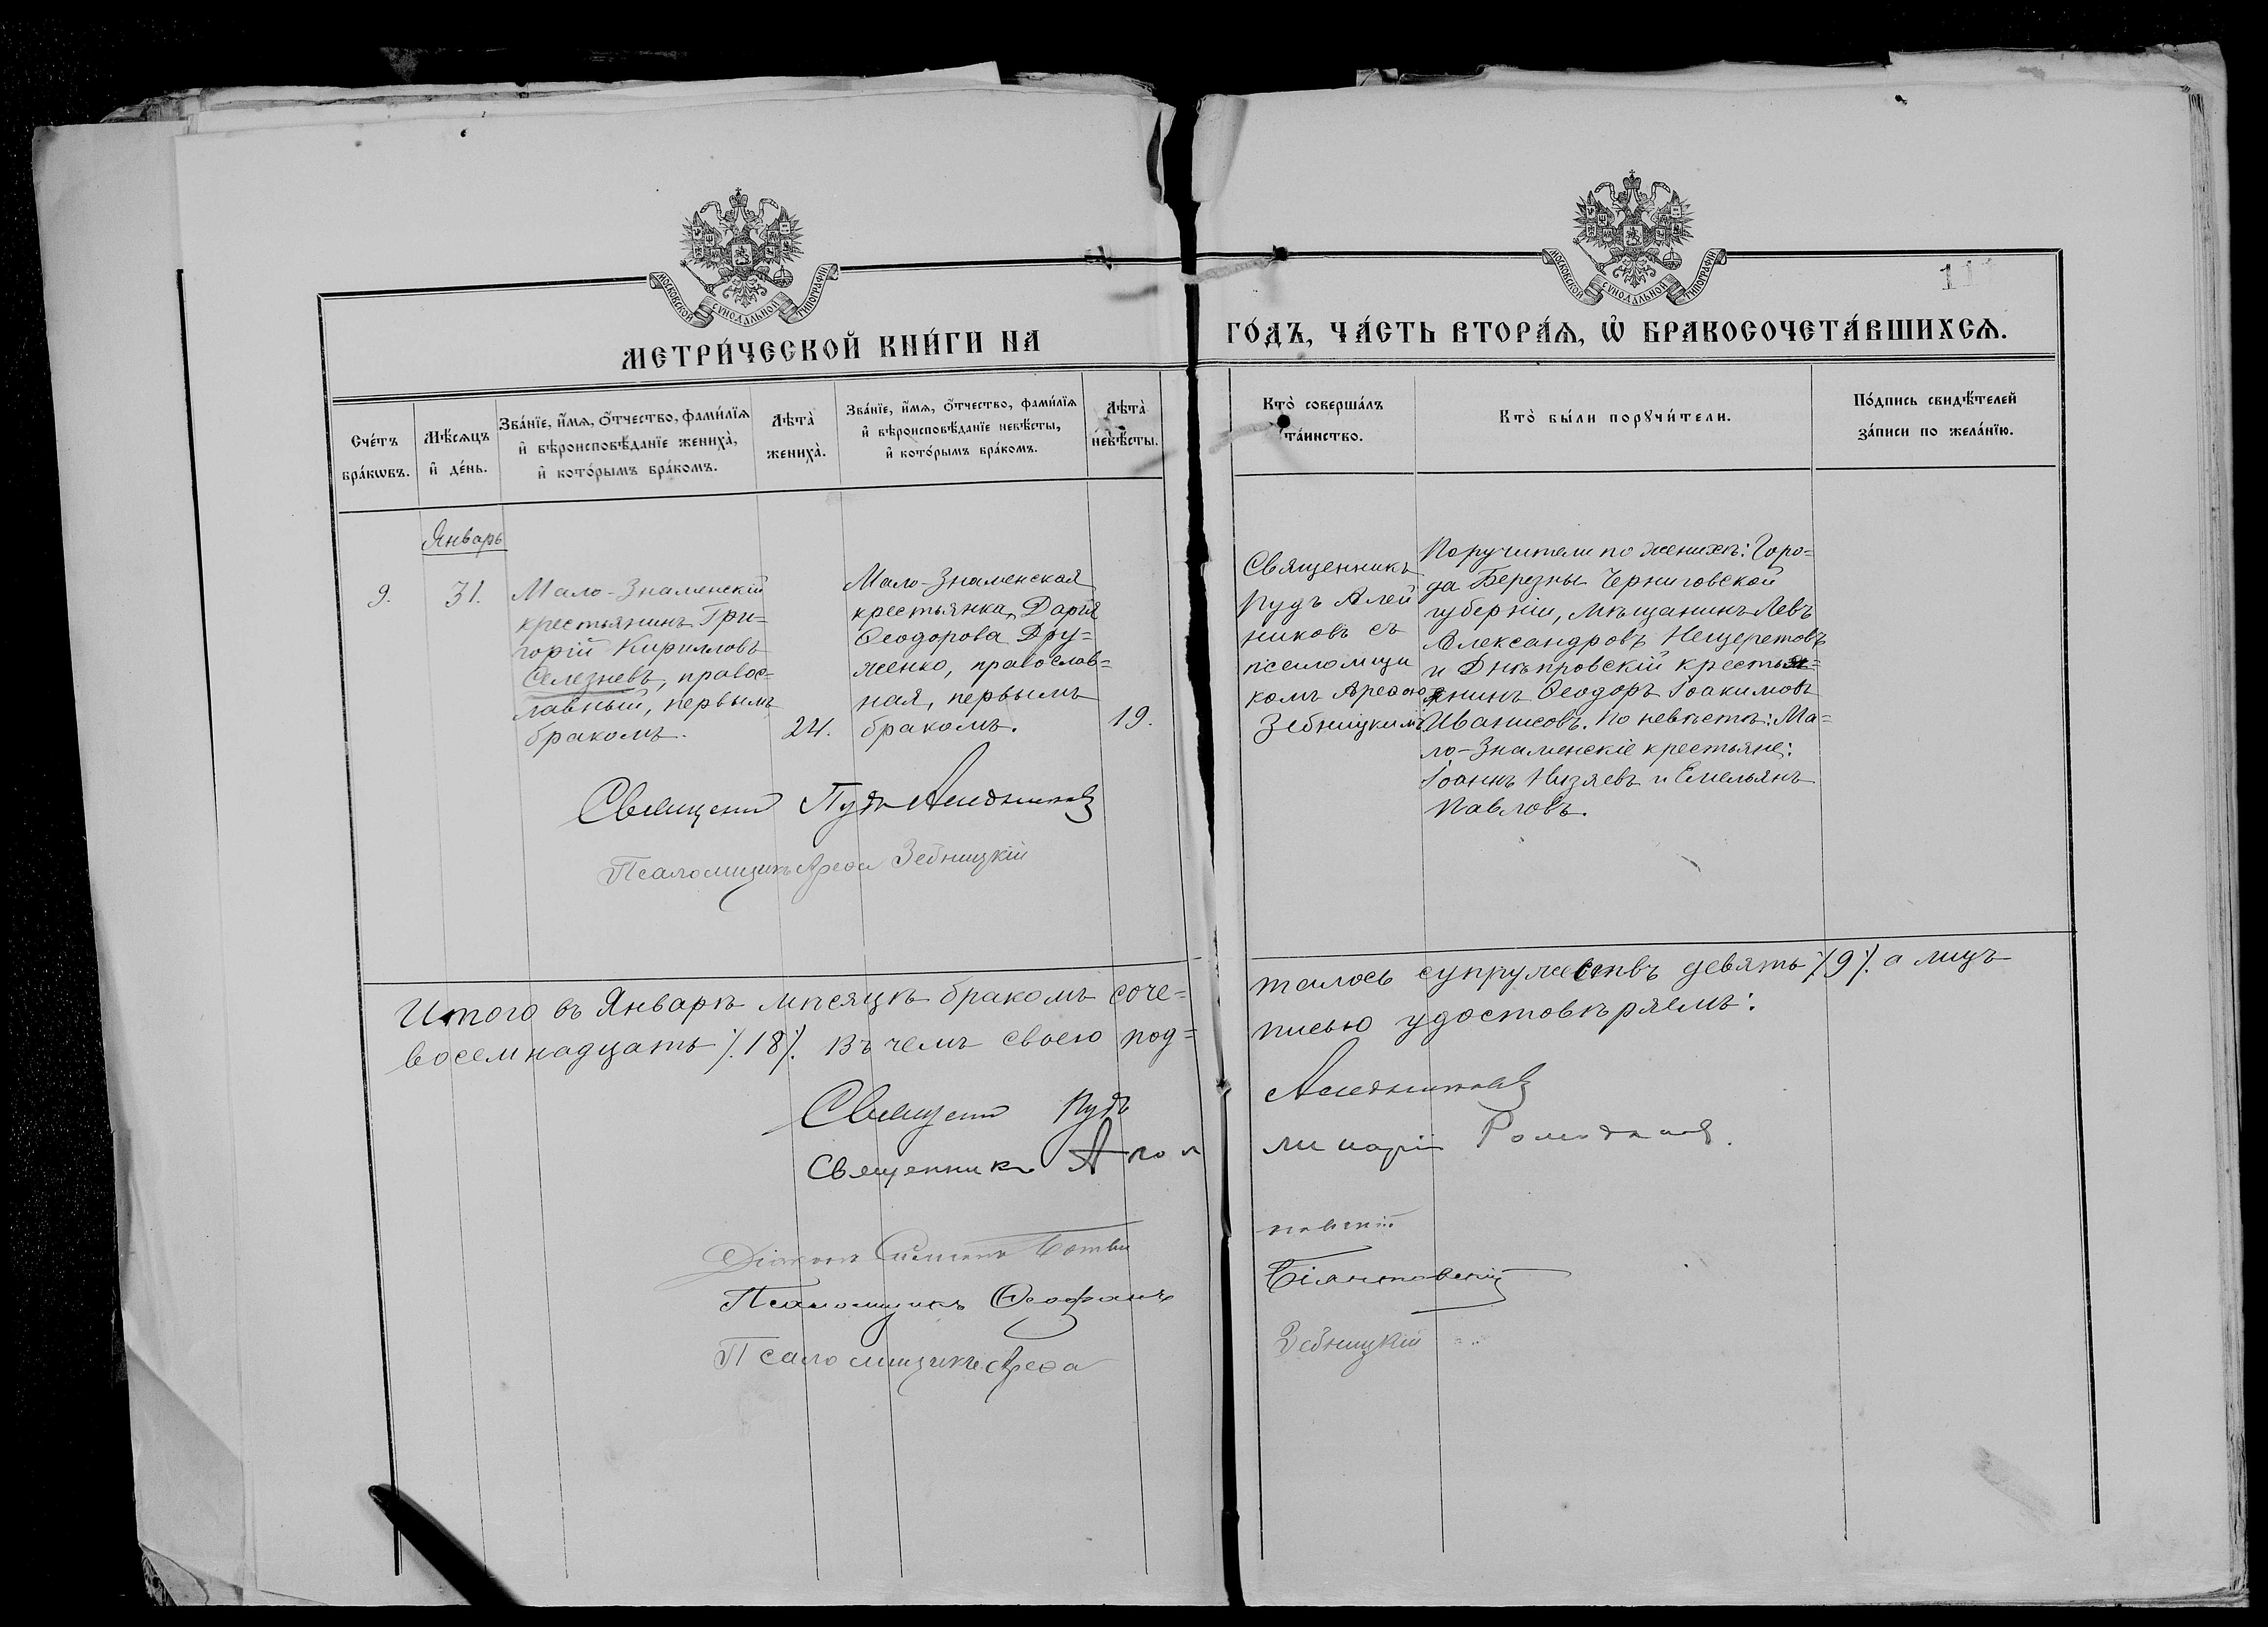 МОСКОВСКОЙ СѴНОДАЛЬНОЙ ТИПОГРАФІИ
МОСКОВСКОЙ СѴНОДАЛЬНОЙ ТИПОГРАФІИ
МЕТРИ́ЧЕСКОЙ КНИ́ГИ НА
ГО́ДЪ, ЧА́СТЬ ВТОРА́Ѧ, Ѽ БРАКОСОЧЕТА́ВШИХСѦ.
Сче́тъ
бра́кѡвъ.
Мѣ́сѧцъ
и҆ де́нь.
Зва́нїе, и҆́мѧ, ѻ҆́тчество, фами́лїѧ
и҆ вѣроисповѣ́данїе жениха̀,
и҆ кото́рымъ бра́комъ.
Лѣта̀
жениха̀.
Зва́нїе, и҆́мѧ, ѻ҆́тчество, фами́лїѧ
и҆ вѣроисповѣ́данїе невѣ́сты,
и҆ кото́рымъ бра́комъ.
Лѣта̀
невѣ́сты.
Кто̀ соверша́лъ
та́инство.
Кто̀ бы́ли порꙋчи́тели.
По́дпись свидѣ́телей
за́писи по жела́нїю.
Январь
9.
31.
Мало-Знаменскій
крестьянинъ Гри=
горій Кирилловъ
Селезневъ, правос=
лавный, первымъ
бракомъ.
24.
Мало-Знаменская
крестьянка, Дарія
Ѳеодорова Дру=
женко, православ=
ная, первымъ
бракомъ.
19.
Священникъ
Пудъ Алей
никовъ съ
псаломщи
комъ Ареѳою
Зебницкимъ
Поручители по женихѣ: Горо=
да Березны Черниговской
губерніи, мѣщанинъ Левъ
Александровъ Нещеретовъ
и Днѣпровскій крестья=
нинъ Ѳеодоръ Іоакимовъ
Иванисовъ. По невѣстѣ: Ма=
ло-Знаменскіе крестьяне:
Іоаннъ Низяевъ и Емельянъ
Павловъ.
Священникъ Пудъ Алейниковъ
Псаломщикъ Ареѳа Зебницкій
Итого въ Январѣ мѣсяцѣ бракомъ соче=
талось супружествъ девять ∕.9∕. а лицъ
восемнадцать ∕.18∕. Въ чемъ своею под=
писью удостовѣряемъ:
Священникъ Пудъ Алейниковъ
Священникъ Аполлинарій
Псаломщикъ Ѳеофанъ
Псаломщикъ Ареѳа Зебницкій